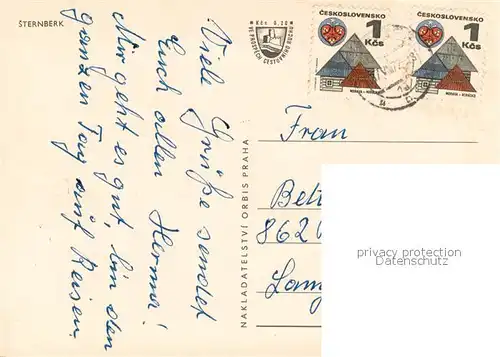 ŠTERNBERK
Viele Grüße sendet
Euch allen Herma!
Mir geht es gut, bin den
ganzen Tag auf Reisen.
Kčs 0,20
VE PROSPĚCH CESTOVNÍHO RUCHU
NAKLADATELSTVÍ ORBIS PRAHA
ČESKOSLOVENSKO
1
Kčs
MORAVA - HORÁCKO
ČESKOSLOVENSKO
1
Kčs
MORAVA - HORÁCKO
Frau
862
privacy protection
Datenschutz